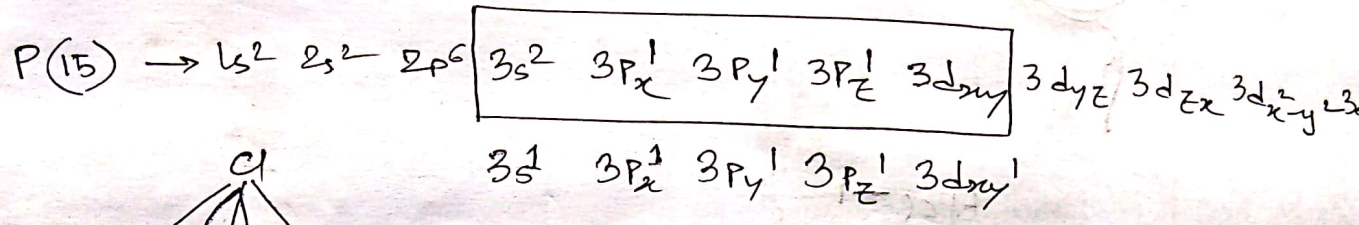 P(15) → 1s² 2s² 2p⁶ 3s² 3Pₓ¹ 3Py¹ 3Pz¹ 3dxy 3dyz 3dzx 3dx²-y²
Cl 3s¹ 3Pₓ¹ 3Py¹ 3Pz¹ 3dxy¹